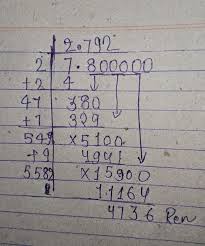 2.792
2 7.800000
+2 4
47 380
+7 329
549 ×5100
+9 4941
5582 ×15900
11164
4736 Rem